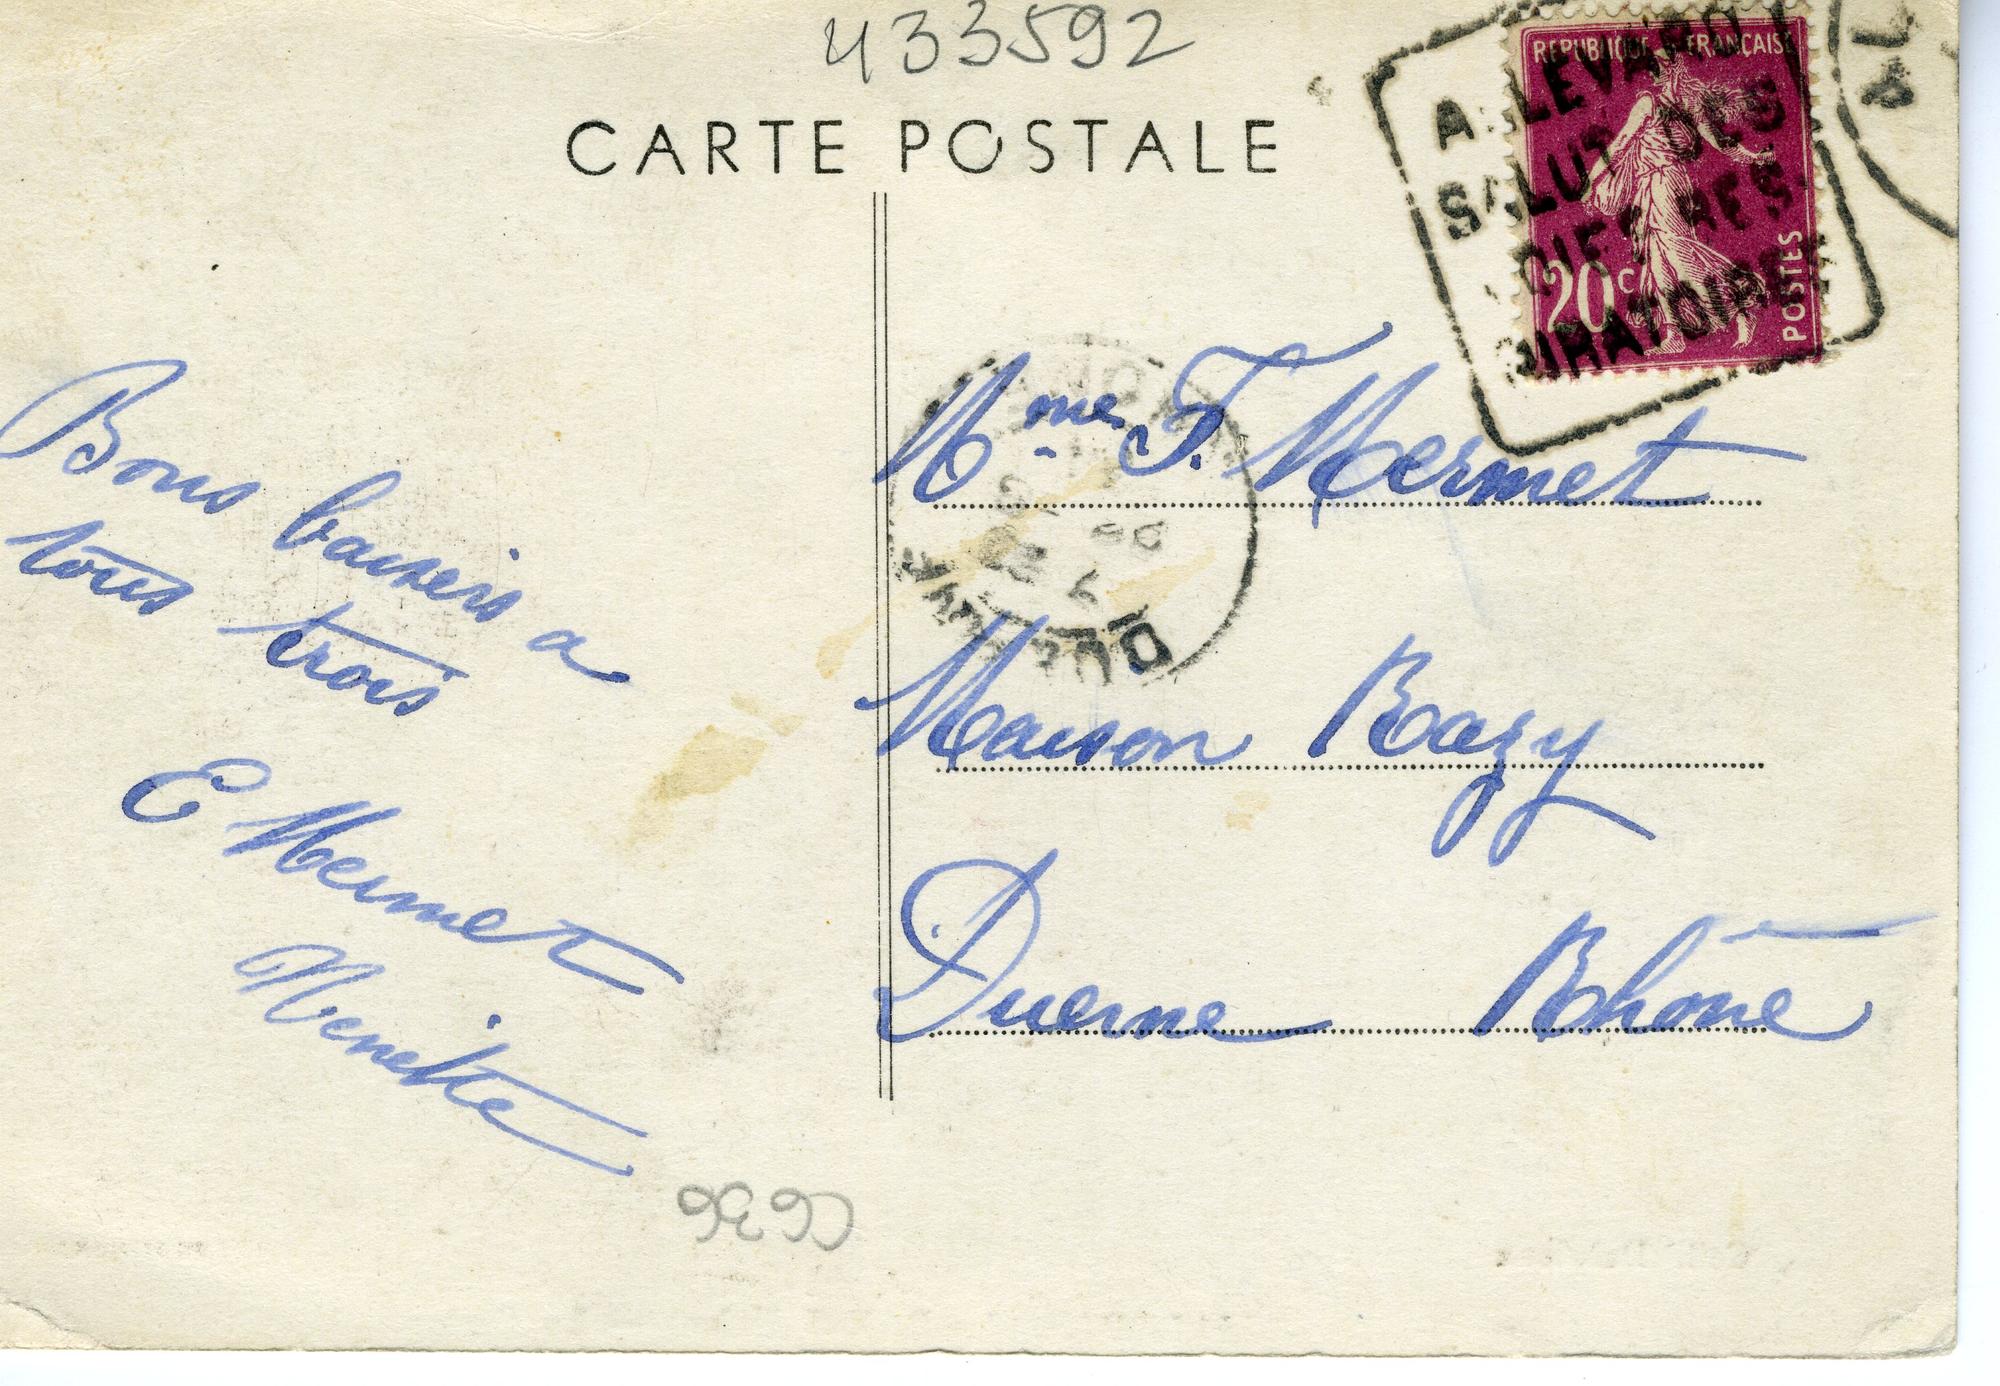 433592
CARTE POSTALE
REPUBLIQUE FRANÇAISE
20c
POSTES
ALLEVARD
SALUT DES
VOIES RES
PIRATOIRES
AL
Bons baisers a
tous trois
E Mermet
Ninette
Mme J. Mermet
Maison Bazy
Duerne Rhône
DUERNE
C636